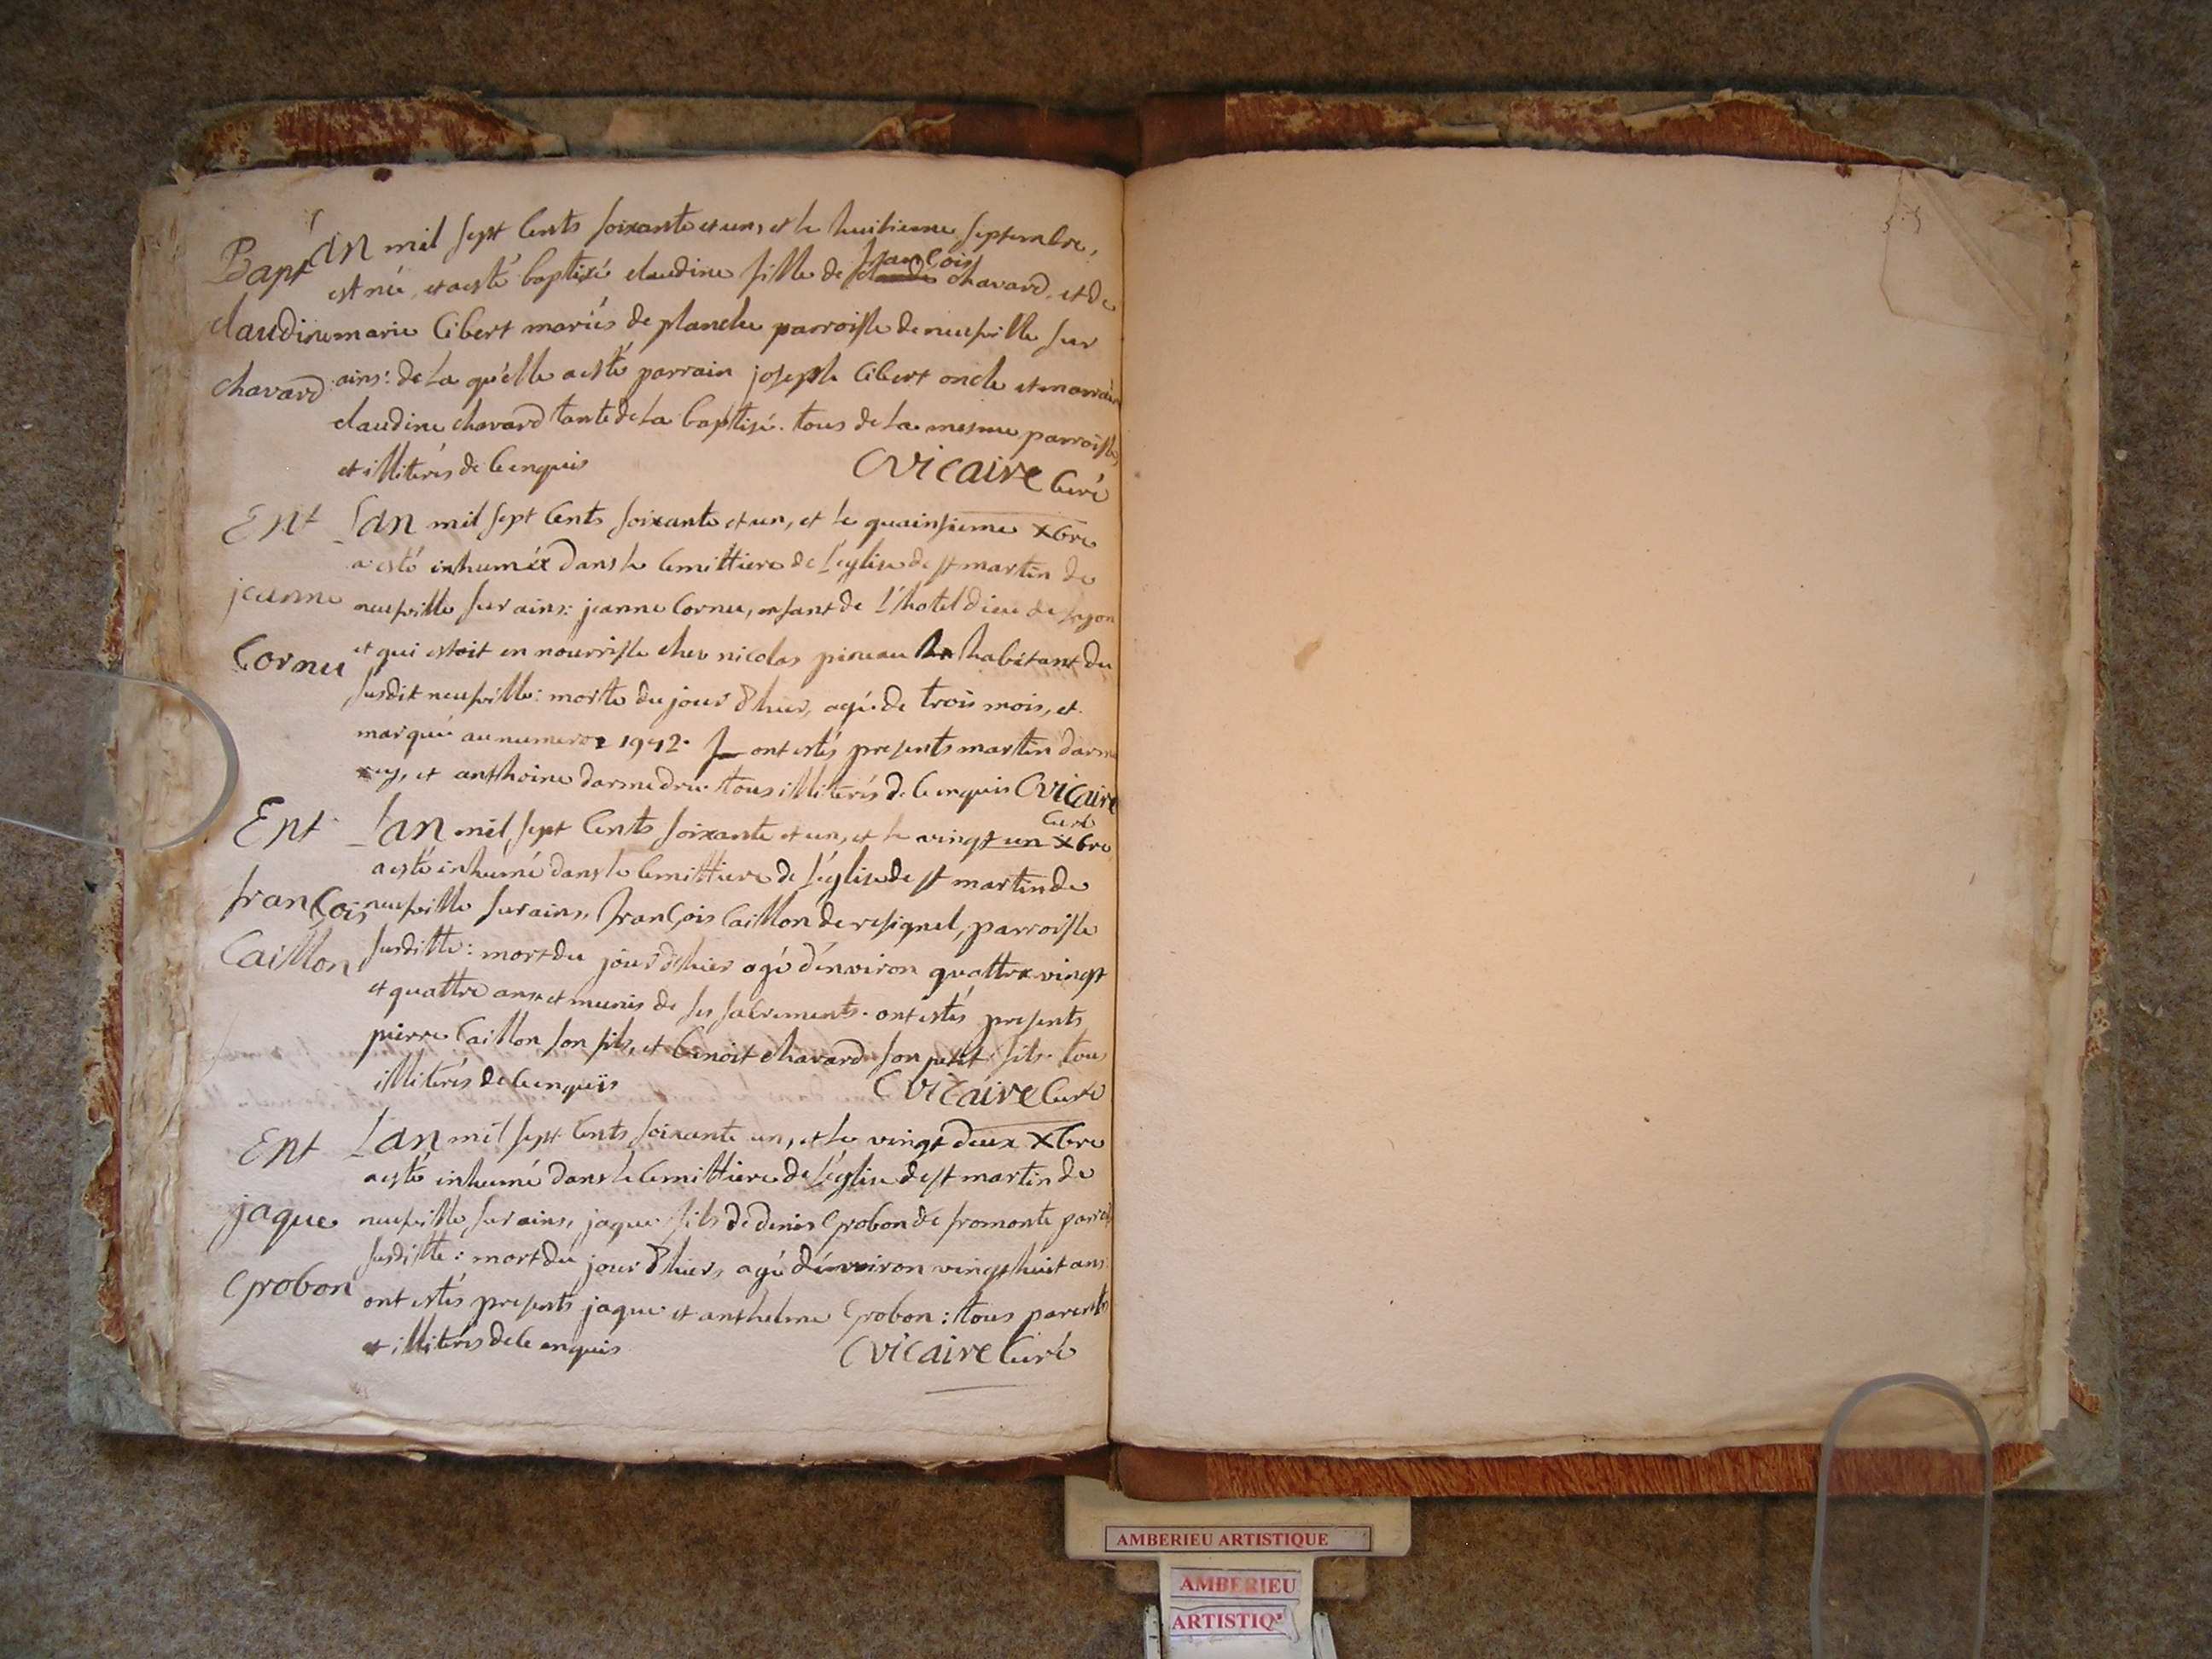 Bapt
claudine
chavard
L'an mil sept Cents soixante et un, et le huitieme septembre,
est née, et a esté baptisé claudine fille de claude françois chavard, et de
marie Cibert mariés de planche parroisse de neufville sur
ains: de La qu'elle a esté parrain joseph Cibert oncle et marraine
claudine chavard tante de La baptisé. tous de La mesme parroisse,
et illiterés de Ce enquis CVicaire Curé
Ent
jeanne
Cornu
Lan mil sept Cents soixante et un, et le quainsieme xbre
a esté inhumée dans le Cemittiere de L'eglise de st martin de
neufville sur ains: jeanne Cornu, enfant de L'hotel dieu de Lyon
et qui estoit en nourrisse chez nicolas pineau habitant du
susdit neufville: morte du jour d'hier, agé de trois mois, et
marquée au numero 1942. ont estés presents martin darme
rey, et anthoine darmedru tous illiterés de Ce enquis CVicaire
Curé
Ent
françois
Caillon
Lan mil sept Cents soixante et un, et le vingt un xbre
a esté inhumé dans le Cemittiere de L'église de st martin de
neufville sur ains, françois Caillon de resignel, parroisse
susditte: mort du jour d'hier agé d'environ quattre vingt
et quattre ans et munis de ses sacrements. ont estés presents
pierre Caillon son fils, et benoit chavard son petit fils. tous
illiterés de Ce enquis CVicaire Curé
Ent
jaque
Grobon
Lan mil sept Cents soixante un, et le vingt deux xbre
a esté inhumé dans le Cemittiere de L'église de st martin de
neufville sur ains, jaque fils de denis Grobon de fromonte parroi
susditte: mort du jour d'hier, agé d'environ vingt huit ans
ont estés presents jaque et anthelme Grobon: tous parents
et illiterés de Ce enquis CVicaire Curé
AMBERIEU ARTISTIQUE
AMBERIEU
ARTISTIQ